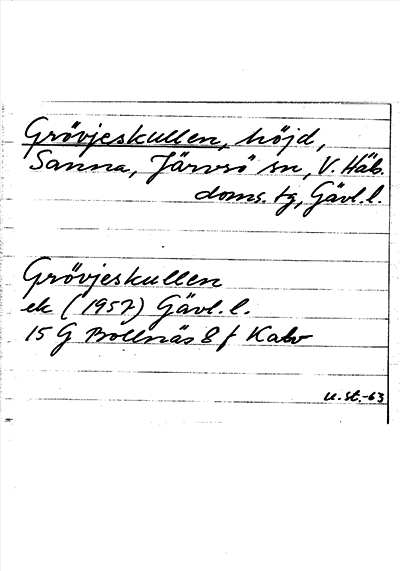 Grövjeskullen, höjd,
Sanna, Järvsö sn, V. Häls.
doms. tg, Gävl. l.
Grövjeskullen
ek (1957) Gävl. l.
15 G Bollnäs 8 f Kalv
u. st. -63